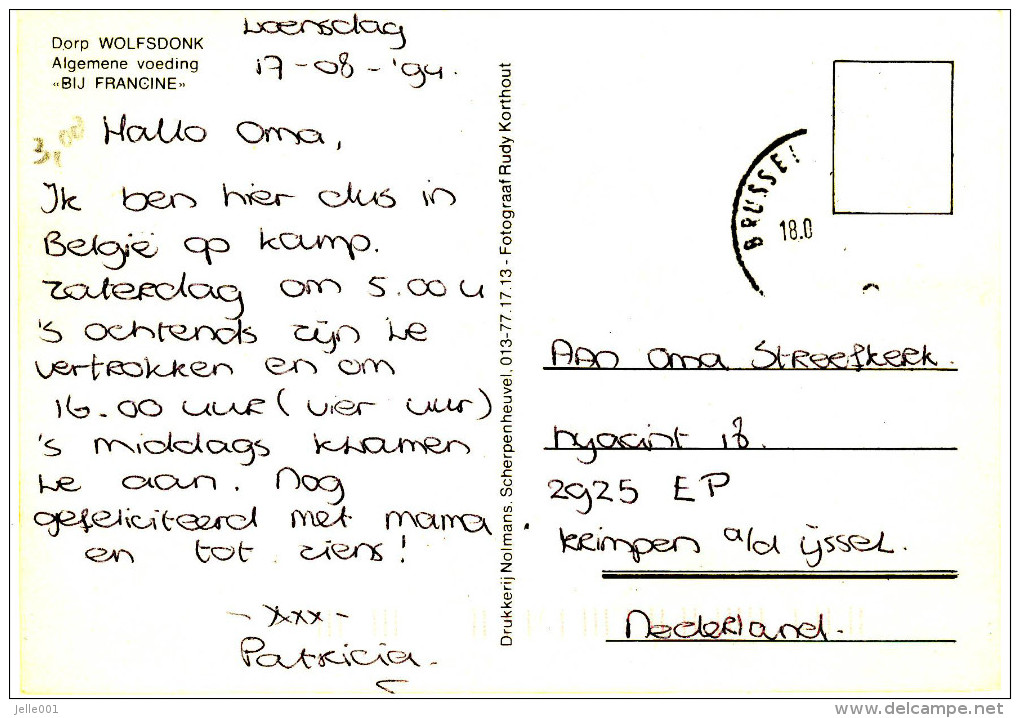 Dorp WOLFSDONK
Algemene voeding
«BIJ FRANCINE»
woensdag
17-08-'94.
3,00
Hallo Oma,
Ik ben hier dus in
België op kamp.
zaterdag om 5.00 u
's ochtends zijn we
vertrokken en om
16.00 uur (vier uur)
's middags kwamen
we aan. Nog
gefeliciteerd met mama
en tot ziens!
-xxx-
Patricia.
Drukkerij Nolmans. Scherpenheuvel, 013-77.17.13 - Fotograaf Rudy Korthout
BRUSSE
18.0
Aan Oma Streefkerk.
hyacint 18.
2925 EP
Krimpen a/d ijssel.
Nederland.
jelle001
delcampe.net